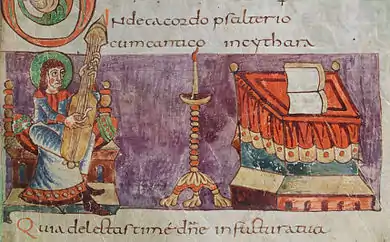 INdecacordo psalterio
cumcantico incythara
Quia delectastime dñe in facturatua